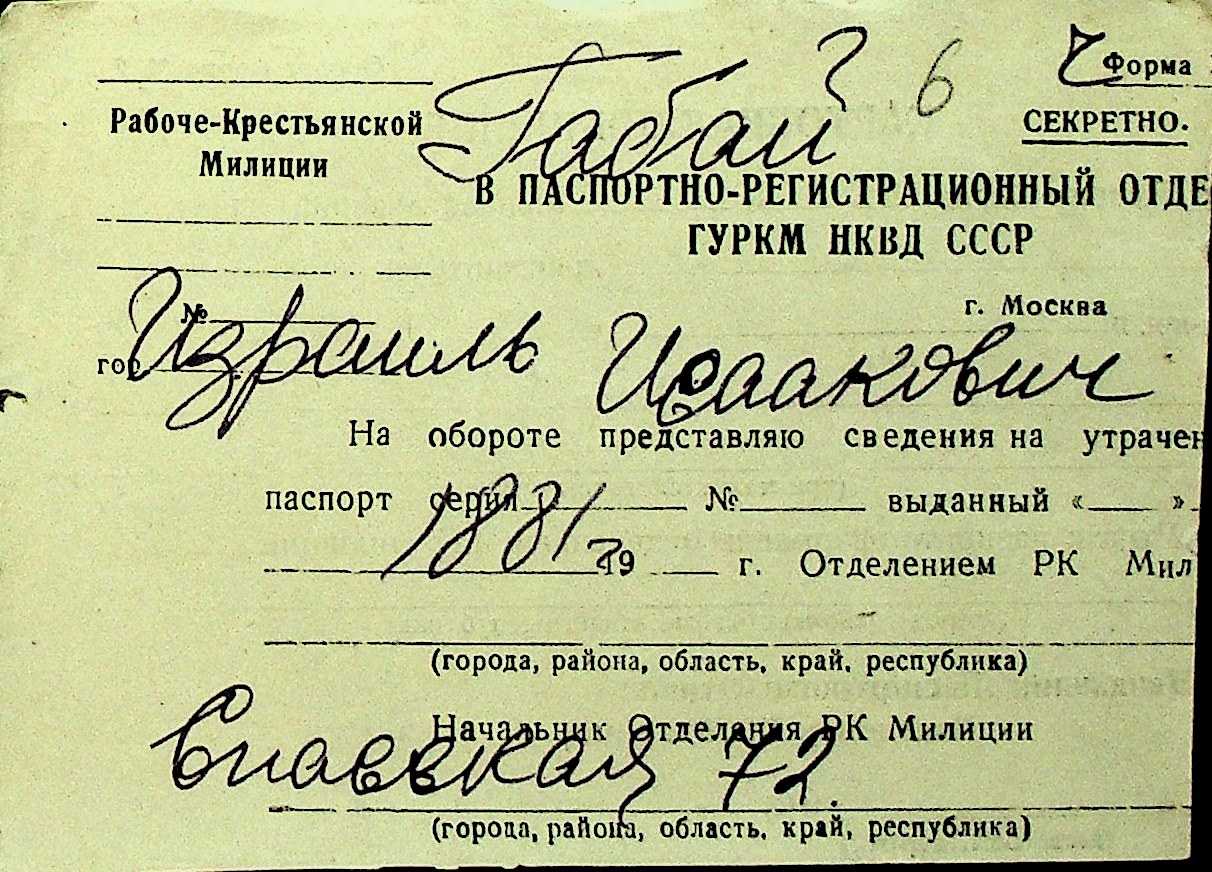 Габай
6
Форма
Рабоче-Крестьянской
Милиции
СЕКРЕТНО.
В ПАСПОРТНО-РЕГИСТРАЦИОННЫЙ ОТДЕ
ГУРКМ НКВД СССР
№
г. Москва
гор
Израиль Исаакович
На обороте представляю сведения на утрачен
паспорт серия № выданный « »
1881
19 г. Отделением РК Мил
(города, района, область, край, республика)
Начальник Отделения РК Милиции
72
(города, района, область, край, республика)